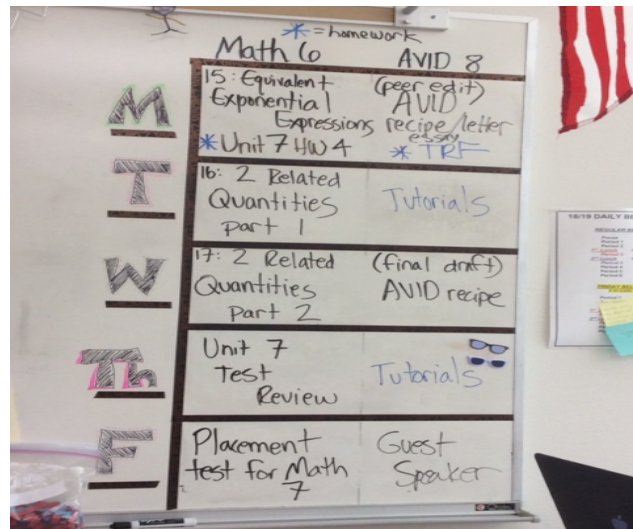 * = homework
Math 6
AVID 8
M
15: Equivalent
Exponential
Expressions
* Unit 7 HW 4
(peer edit)
AVID
recipe/letter
essay
* TRF
T
16: 2 Related
Quantities
part 1
Tutorials
W
17: 2 Related
Quantities
part 2
(final draft)
AVID recipe
Th
Unit 7
Test
Review
Tutorials
F
Placement
test for Math
7
Guest
Speaker
18/19 DAILY